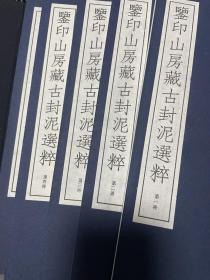 鑒印山房藏古封泥選粹
第一冊
鑒印山房藏古封泥選粹
第二冊
鑒印山房藏古封泥選粹
第三冊
鑒印山房藏古封泥選粹
第四冊